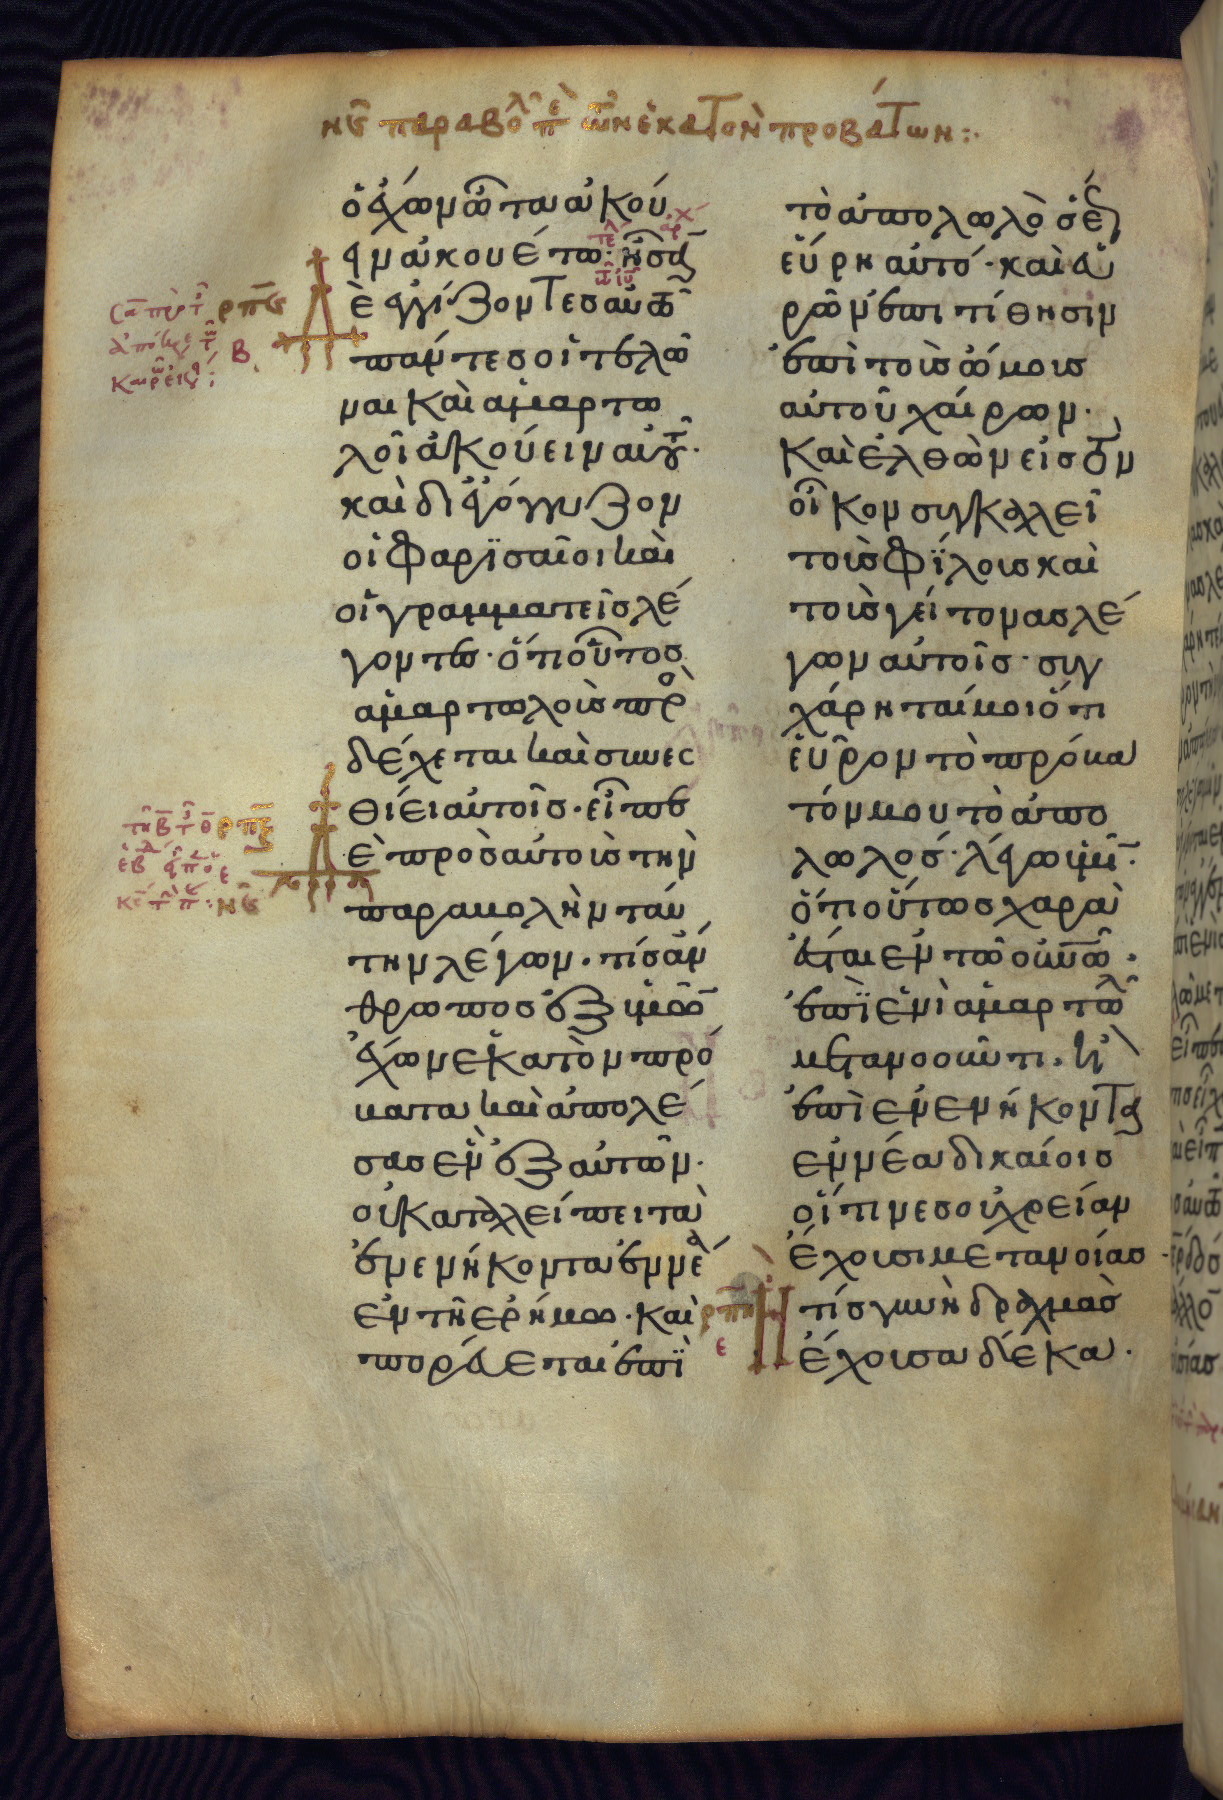 νϛ παραβολ πε τῶν ἑκατὸν προβάτων:·
ὁ ἔχων ὦτα ἀκού
ειν ἀκουέτω· ἦσαν
δὲ ἐγγίζοντες αὐτῶ
πάντες οἱ τελῶ
ναι καὶ ἁμαρτω
λοὶ ἀκούειν αὐτοῦ·
καὶ διεγόγγυζον
οἱ Φαρϊσαῖοι καὶ
οἱ γραμματεῖς λέ
γοντες· ὅτι οὗτος
ἁμαρτωλοὺς προσ
δέχεται καὶ συνεσ
θίει αὐτοῖς· εἶπε
δὲ πρὸς αὐτοὺς τὴν
παραβολὴν ταύ
την λέγων· τίς ἄν
θρωπος ἐξ ὑμῶν
ἔχων ἑκατὸν πρό
βατα καὶ ἀπολέ
σας ἓν ἐξ αὐτῶν·
οὐ καταλείπει τὰ
ἐνενήκοντα ἐννέα
ἐν τῆ ἐρήμω· καὶ
πορεύεται ἐπὶ
τὸ ἀπολωλὸς ἕως
εὕρη αὐτό· καὶ εὑ
ρὼν ἐπιτίθησιν
ἐπὶ τοὺς ὤμους
αὐτοῦ χαίρων·
καὶ ἐλθὼν εἰς τὸν
οἶκον συγκαλεῖ
τοὺς Φίλους καὶ
τοὺς γείτονας λέ
γων αὐτοῖς· συγ
χάρηταί μοι ὅτι
εὗρον τὸ πρόβα
τόν μου τὸ ἀπο
λωλός· λέγω ὑμῖν·
ὅτι οὕτως χαρὰ
ἔσται ἐν τῶ οὐνῶ·
ἐπῒ ἑνὶ ἁμαρτωλῶ
μετανοοῦντι· ἢ
ἐπὶ ἐνενήκοντα
ἐννέα δικαίοις
οἵτινες οὐ χρείαν
ἔχουσι μετανοίας·
ἢ τίς γυνὴ δραχμὰς
ἔχουσα δέκα·
ρπϛ
β
ρπζ
νϛ
ρπη
ε